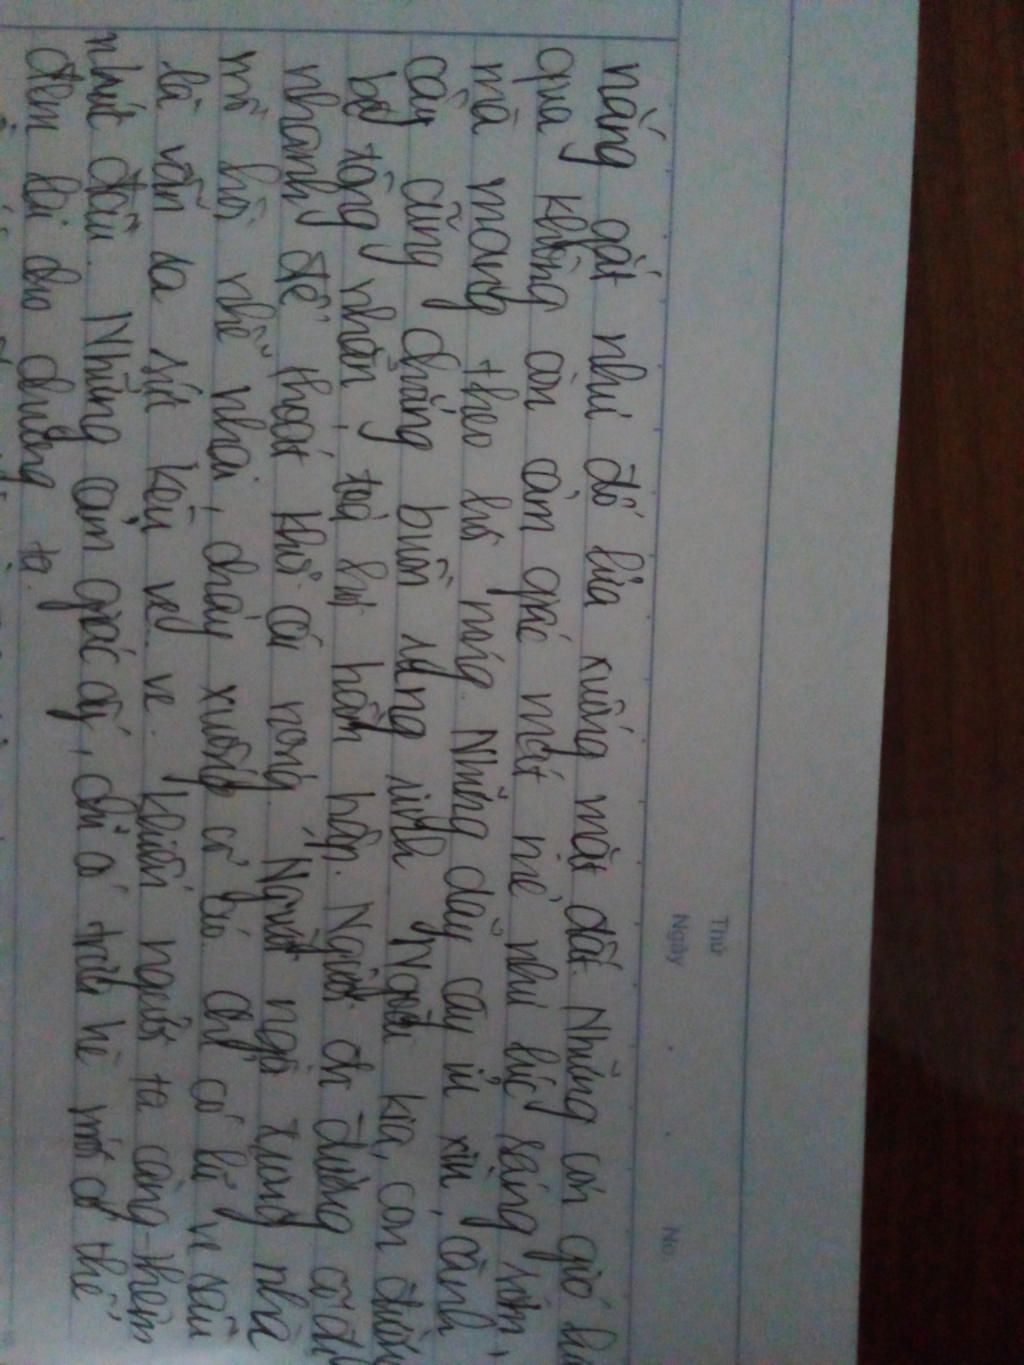 Thứ
Ngày
No.
nắng gắt như đổ lửa xuống mặt đất. Những cơn gió
qua không còn cảm giác mát mẻ như lúc sáng sớm,
mà mang theo hơi nóng. Những dãy cây ủ xìu, cành
cây cũng chẳng buồn rung rinh. Ngoài kia, con đường
bê tông nhẵn, toả hơi hầm hập. Người đi đường cố đi
nhanh để thoát khỏi cái nóng. Người ngồi trong nhà
mồ hôi nhễ nhại, chảy xuống cổ áo. Chỉ có lũ ve sầu
là vẫn ra rít kêu ve ve. khiến người ta càng thêm
nhức đầu. Những cảm giác ấy, chỉ có trưa hè mới có thể
đem lại cho chúng ta.